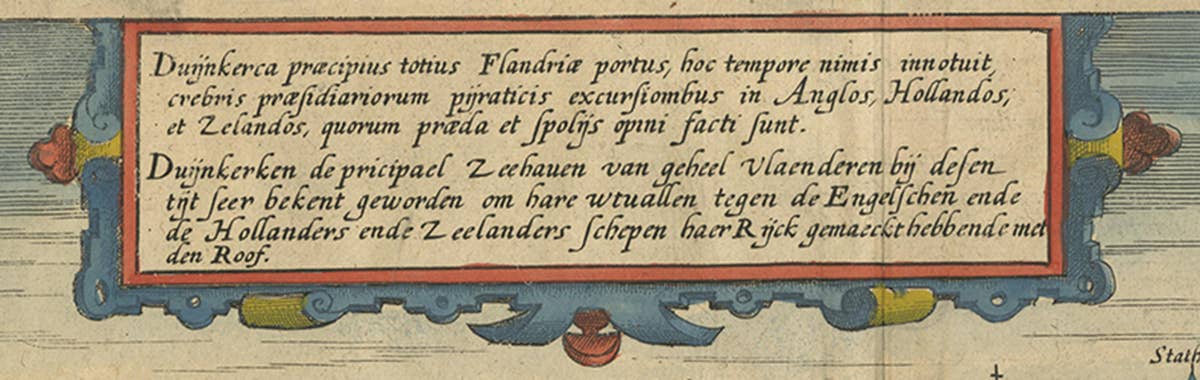 Duijnkerca præcipius totius Flandriæ portus, hoc tempore nimis innotuit,
crebris præsidiariorum pijraticis excursiombus in Anglos, Hollandos,
et Zelandos, quorum præda et spolijs opimi facti sunt.
Duijnkerken de pricipael Zeehauen van geheel Vlaenderen bij desen
tijt seer bekent geworden om hare wtuallen tegen de Engelschen ende
de Hollanders ende Zeelanders schepen haer Rijck gemaeckt hebbende met
den Roof.